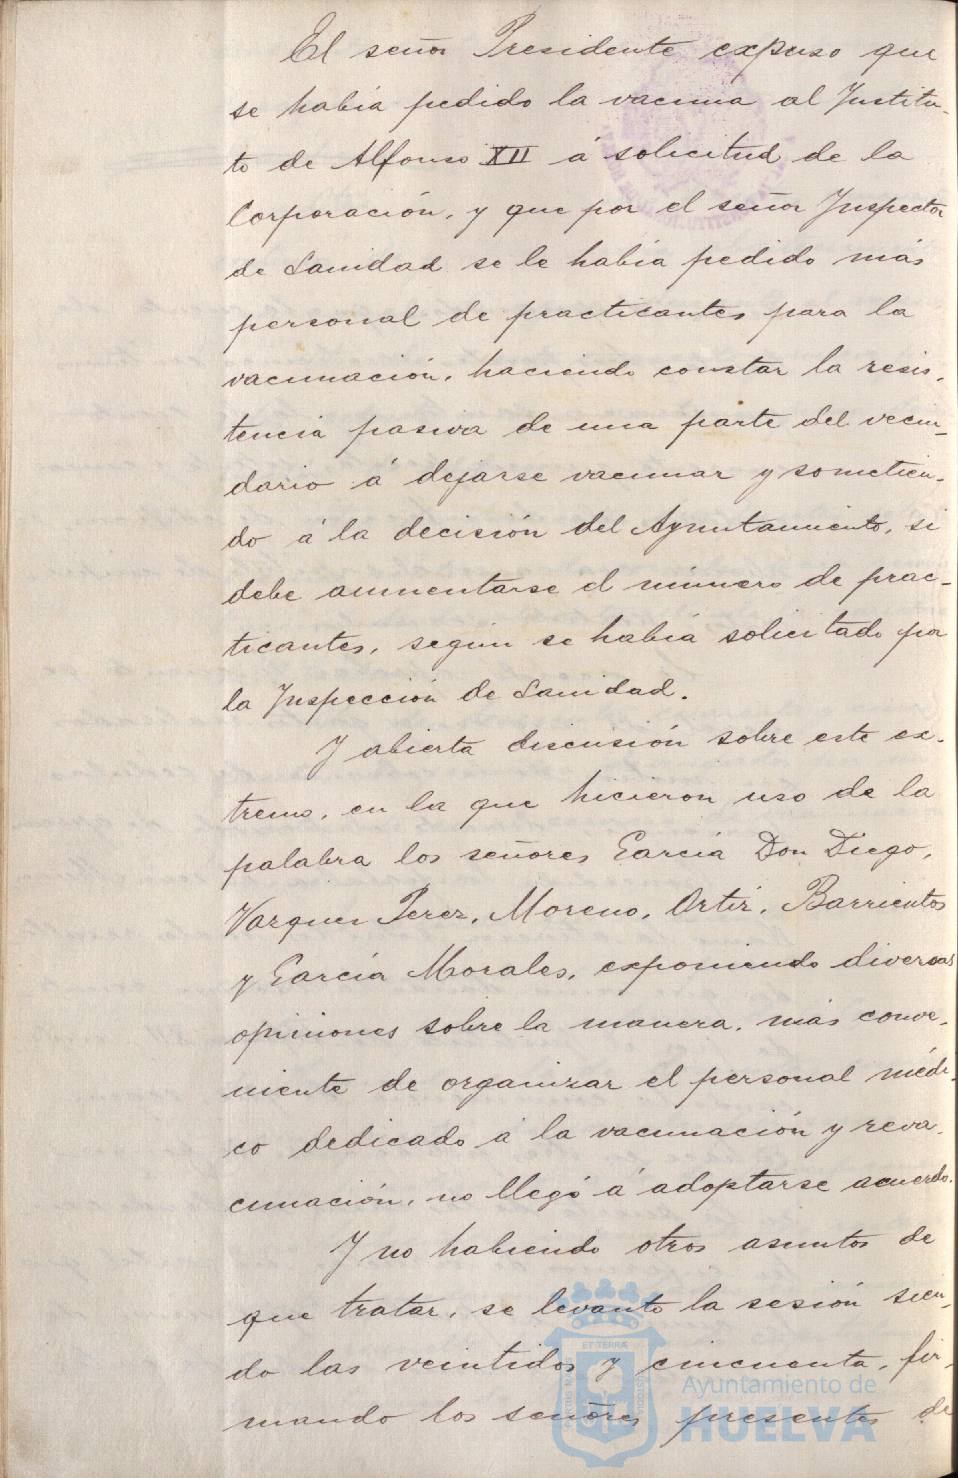 El señor Presidente expuso que
se había pedido la vacuna al Institu-
to de Alfonso XII á solicitud de la
Corporación, y que por el señor Inspector
de Sanidad se le había pedido más
personal de practicantes para la
vacunación, haciendo constar la resis-
tencia pasiva de una parte del vecin-
dario á dejarse vacunar y sometien-
do á la decisión del Ayuntamiento, si
debe aumentarse el número de prac-
ticantes, según se había solicitado por
la Inspección de Sanidad.
Y abierta discusión sobre este ex-
tremo, en la que hicieron uso de la
palabra los señores García Don Diego,
Vazquez Perez, Moreno, Ortiz, Barrientos
y García Morales, exponiendo diversas
opiniones sobre la manera, más conve-
niente de organizar el personal médi-
co dedicado á la vacunación y reva-
cunación, no llegó á adoptarse acuerdo.
Y no habiendo otros asuntos de
que tratar, se levantó la sesión sien-
do las veintidos y cincuenta, fir-
mando los señores presentes de
Ayuntamiento de
HUELVA